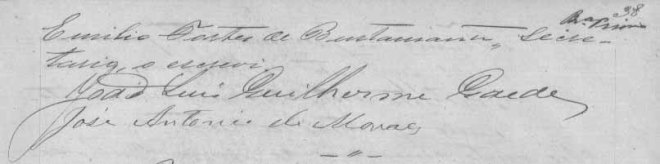 98
Emilio Fortes de Bustamante, Secre-
tario, o escrevi.
João Luis Guilherme Gaede
José Antonio de Moraes